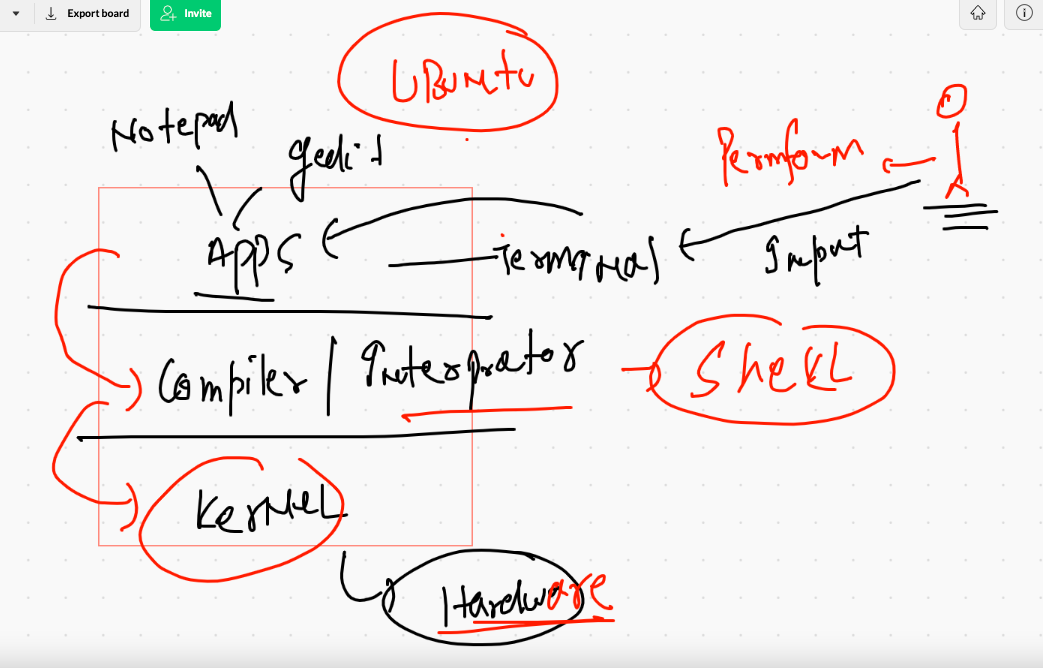 Export board
Invite
UBuntu
Notepad
gedit
Perform
APPS
Terminal
Input
Compiler / Interprator
Shell
Kernel
Hardware